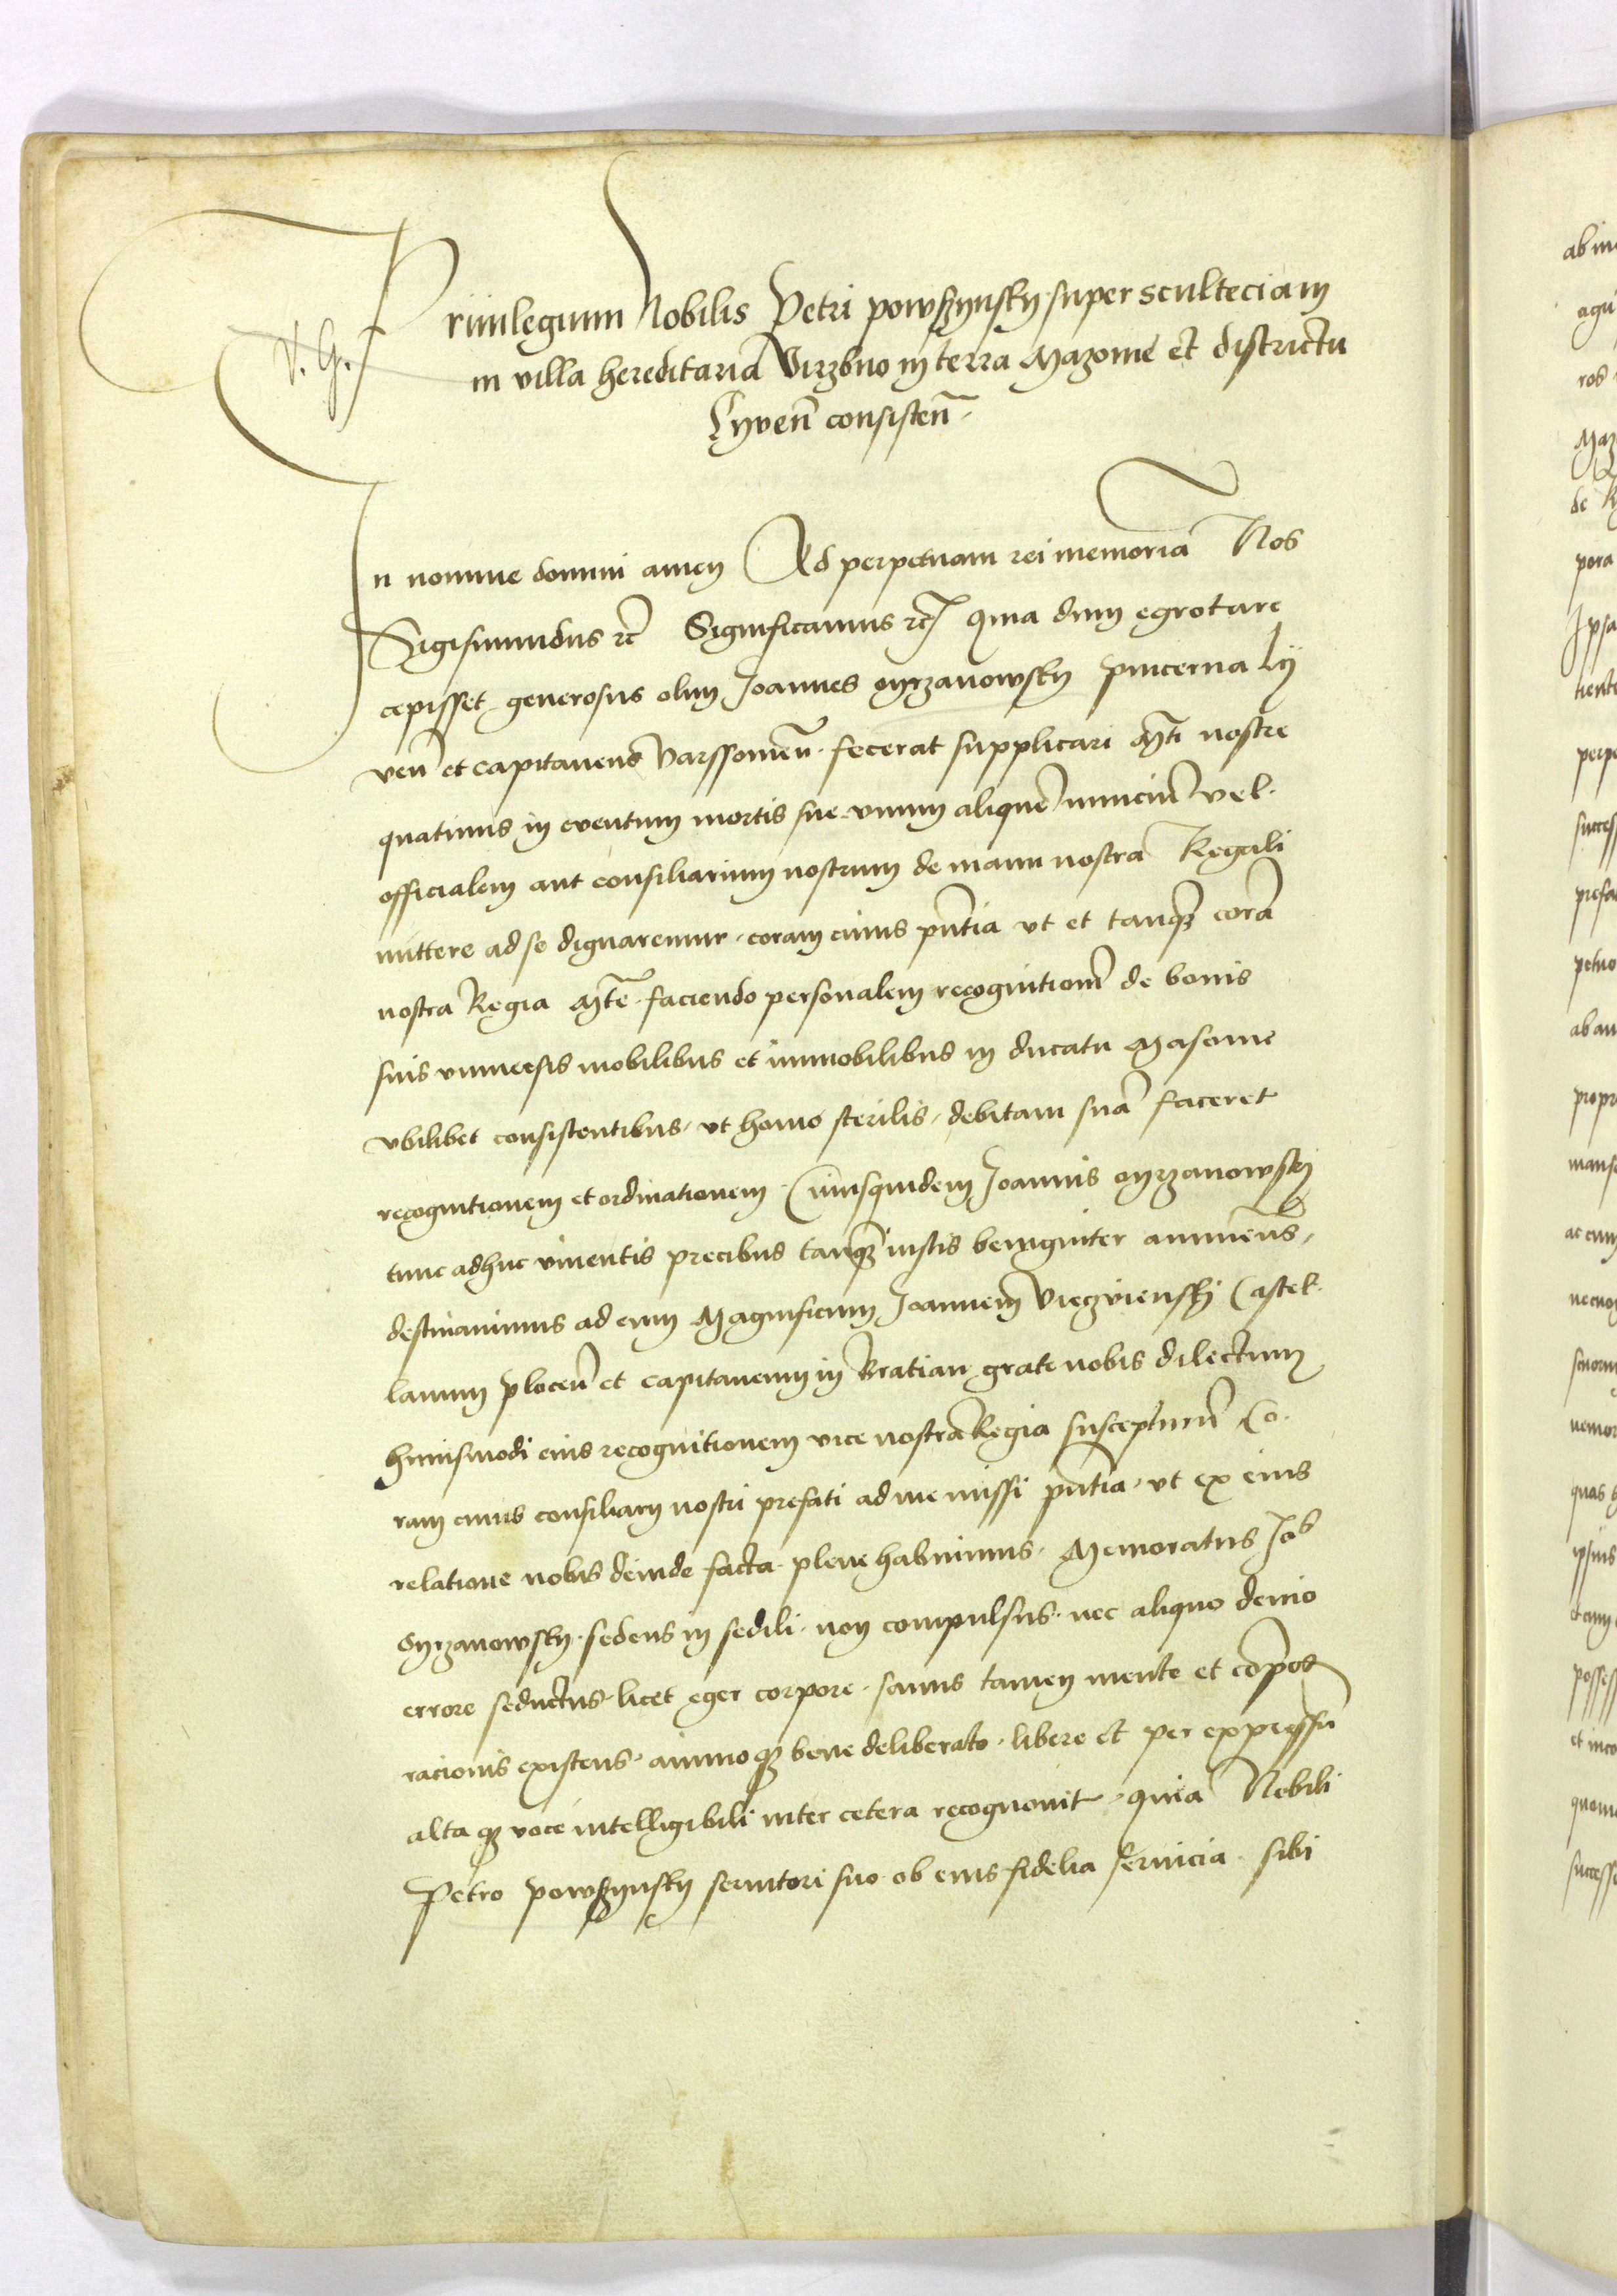 V. G.
Priuilegium Nobilis Petri powszynsky super sculteciam
in villa hereditaria Virzbno in terra Mazouie et districtu
Lyven̄ consisten̄
In nomine domini amen Ad perpetuam rei memoriā Nos
Sigismundus rc̄ Significamus rc̄ Quia dum egrotare
cepisset generosus olim Joannes Myrzanowsky pincerna Ly
ven̄ et capitaneus Varssouien̄ fecerat supplicari Mti nostre
quatinus in euentum mortis sue vnum aliquē nunciū vel
officialem aut consiliarium nostrum de manu nostra Regali
mittere ad se dignaremur, coram cuius pn̄tia vt et tanq̄ corā
nostra Regia Mte faciendo personalem recognitionē de bonis
suis vniuersis mobilibus et immobilibus in ducatu Masouie
vbilibet consistentibus, vt homo sterilis, debitam suā faceret
recognitionem et ordinationem. Cuiusquidem Joannis Myrzanowsky
tunc adhuc viuentis precibus tanq̄ iustis benigniter annuen̄s,
destinauimus ad eum Magnificum Joannem Vieczviensky Castel
lanum plocen̄ et capitaneum in Bratian grate nobis dilectum
huiusmodi eius recognitionem vice nostra Regia suscepturū Co
ram cuius consiliarij nostri prefati ad me missi pn̄tia, vt ex eius
relatione nobis deinde facta plene habuimus. Memoratus Jo̅s
Myrzanowsky sedens in sedili, non compulsus nec aliquo deuio
errore seductus, licet eger corpore, sanus tamen mente et cōpos
racionis existens, animoq₃ bene deliberato, libere et per expressū
altaq₃ voce intelligibili inter cetera recognouit, quia Nobili
Petro powszynsky seruitori suo ob eius fidelia seruicia sibi